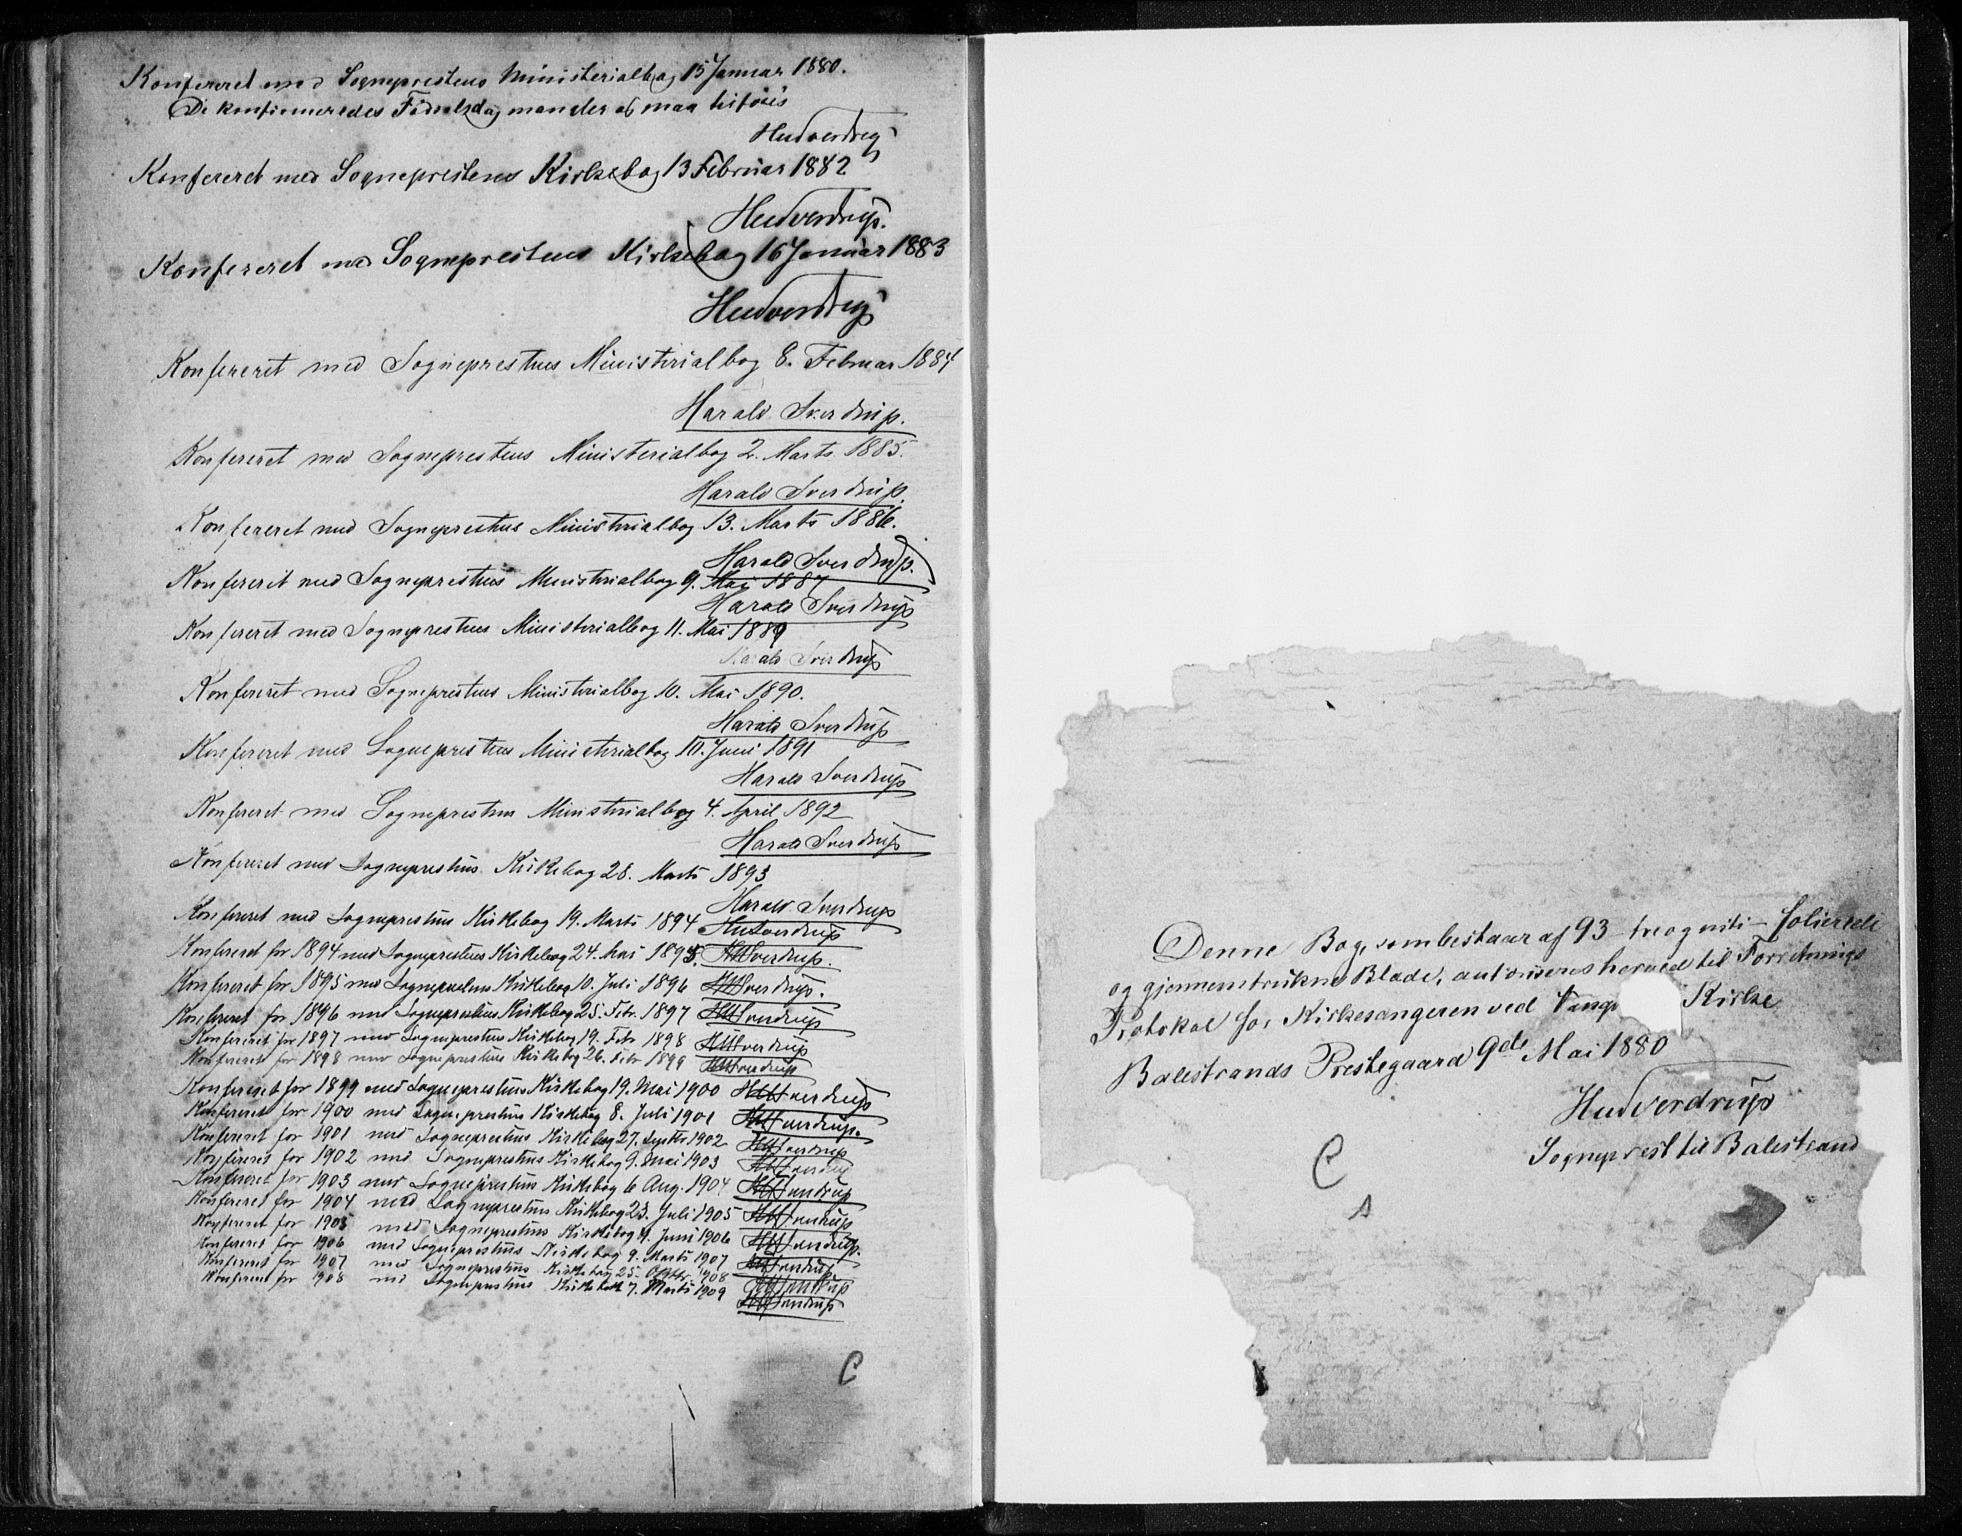 Konfereret med Sogneprestens Ministerialbog 15 Januar 1880.
De konfirmeredes Fødselsdag mangler og maa tilføies
HUSverdrup
Konfereret med Sogneprestens Kirkebog 13 Februar 1882
HUSverdrup.
Konfereret med Sogneprestens Kirkebog 16 Januar 1883
HUSverdrup
Konfereret med Sogneprestens Ministerialbog 8. Februar 1884
Harald Sverdrup.
Konfereret med Sogneprestens Ministerialbog 2. Marts 1885.
Harald Sverdrup.
Konfereret med Sogneprestens Ministerialbog 13. Marts 1886.
Harald Sverdrup.
Konfereret med Sogneprestens Ministerialbog 9. Mai 1887
Harald Sverdrup
Konfereret med Sogneprestens Ministerialbog 11. Mai 1889
Harald Sverdrup
Konfereret med Sogneprestens Ministerialbog 10. Mai 1890.
Harald Sverdrup
Konfereret med Sogneprestens Ministerialbog 10. Juni 1891
Harald Sverdrup
Konfereret med Sogneprestens Ministerialbog 4. April 1892
Harald Sverdrup
Konfereret med Sogneprestens Kirkebog 28. Marts 1893
Harald Sverdrup
Konfereret med Sogneprestens Kirkebog 19. Marts 1894 HUSverdrup
Konfereret for 1894 med Sogneprestens Kirkebog 24. Mai 1895. HUSverdrup.
Konfereret for 1895 med Sogneprestens Kirkebog 10. Juli 1896 HUSverdrup.
Konfereret for 1896 med Sogneprestens Kirkebog 25. Febr. 1897 HUSverdrup
Konfereret for 1897 med Sogneprestens Kirkebog 19. Febr 1898 HUSverdrup
Konfereret for 1898 med Sogneprestens Kirkebog 26. Febr 1899 HUSverdrup
Konfereret for 1899 med Sogneprestens Kirkebog 19. Mai 1900 HUSverdrup
Konfereret for 1900 med Sogneprestens Kirkebog 8. Juli 1901 HUSverdrup.
Konfereret for 1901 med Sogneprestens Kirkebog 27. Septbr 1902 HUSverdrup
Konfereret for 1902 med Sogneprestens Kirkebog 9. Mai 1903 HUSverdrup
Konfereret for 1903 med Sogneprestens Kirkebog 6 Aug. 1904 HUSverdrup
Konfereret for 1904 med Sogneprestens Kirkebog 23. Juli 1905 HUSverdrup
Konfereret for 1905 med Sogneprestens Kirkebog 4. Juni 1906 HUSverdrup.
Konfereret for 1906 med Sogneprestens Kirkebog 9. Marts 1907 HUSverdrup
Konfereret for 1907 med Sogneprestens Kirkebog 25. Oktbr. 1908 HUSverdrup
Konfereret for 1908 med Sogneprestens Kirkebok 7. Marts 1909 HUSverdrup
C
Denne Bog, som bestaar af 93 - treogniti - folierede
og gjennemtrukne Blade, autoriseres herved til Forretnings
Protokol for Kirkesangeren ved Vangs Kirke
Balestrands Prestegaard 9de Mai 1880
HUSverdrup
Sogneprest til Balestrand
C
s